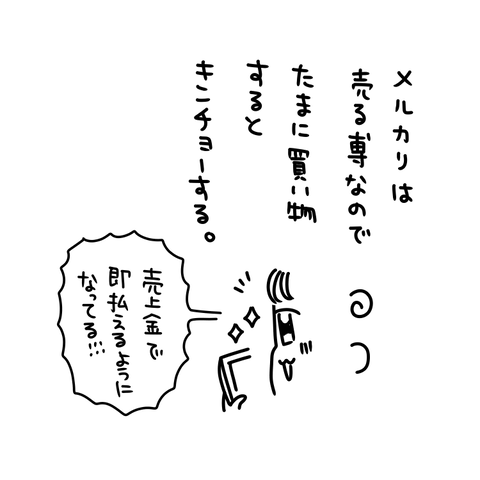 メルカリは
売る専なので
たまに買い物
すると
キンチョーする。
売上金で
即払えるように
なってる…!